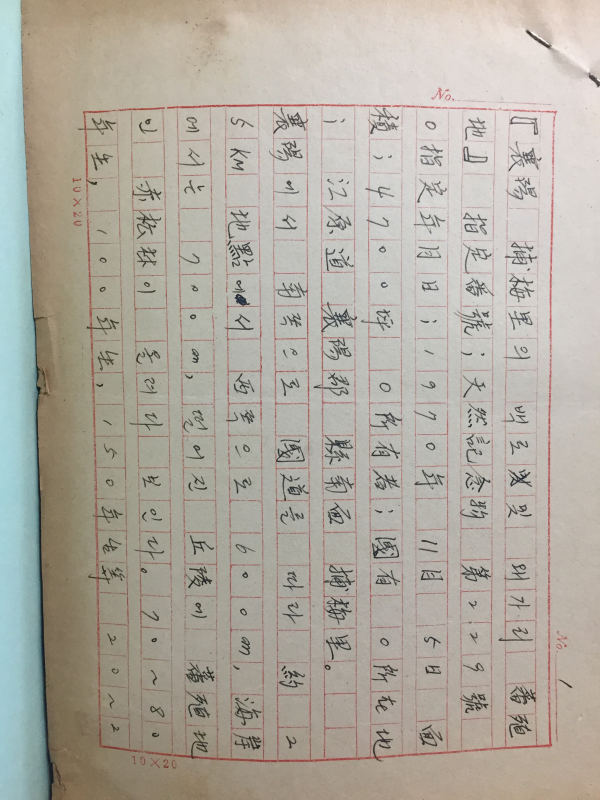 『襄陽 捕梅里의 백로및 왜가리 蕃殖
地』 指定番號; 天然記念物 第229號
○指定年月日; 1970年 11月 5日 面
積; 4700坪 ○所有者; 國有 ○所在地
; 江原道 襄陽郡 縣南面 捕梅里。
襄陽에서 南쪽으로 國道를 따라 約 2
5KM 地點에서 西쪽으로 600m, 海岸
에서는 700m, 떨어진 丘陵에 蕃殖地
인 赤松林이 올려다 보인다。70~80
年生, 100年生, 150年生等 20~2
No.
No. 1
10×20
10×20